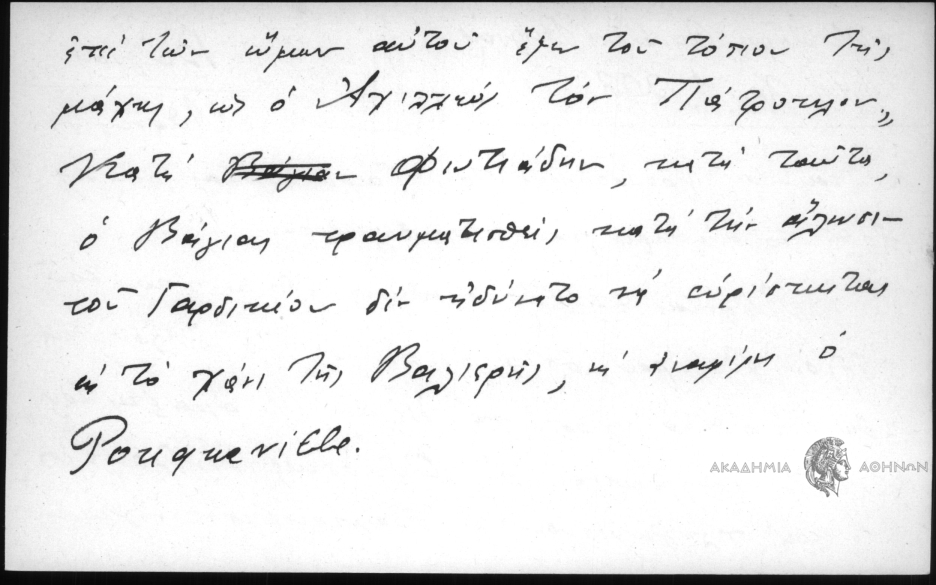 ἐπὶ τῶν ὤμων αὐτοῦ ἔξω τοῦ τόπου τῆς
μάχης, ὡς ὁ Ἀχιλλεὺς τὸν Πάτροκλον„
Κατὰ Βάγιαν Φιντιάδην, κατὰ ταῦτα,
ὁ Βάγιας τραυματισθεὶς κατὰ τὴν ἅλωσι-
τοῦ Γαρδικίου δὲν ἠδύνατο νὰ εὑρίσκηται
εἰς τὸ χάνι τῆς Βαλιερῆς, ὡς ἀναφέρει ὁ
Pouqueville.
ΑΚΑΔΗΜΙΑ ΑΘΗΝΩΝ